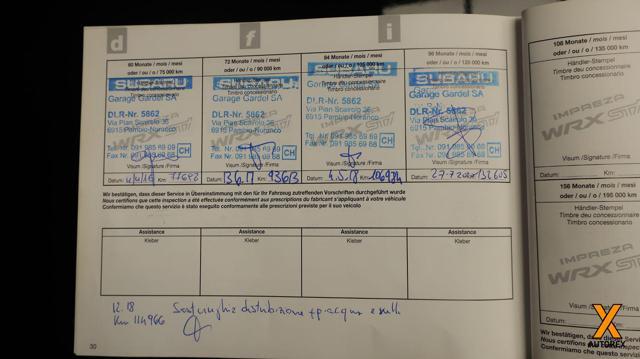 d f i
60 Monate / mois / mesi
oder / ou / o / 75 000 km
SUBARU
Timbro concessionario
Garage Gardel SA
DLR-Nr. 5862
Via Pian Scairolo 36
6915 Pambio-Noranco
Tel. Nr. 091 985 69 69
Fax Nr.
CH
Visum/Signature/Firma
Datum: Km:
72 Monate / mois / mesi
oder / ou / o / 90 000 km
SUBARU
Timbro concessionario
Garage Gardel SA
DLR-Nr. 5862
Via Pian Scairolo 36
6915 Pambio-Noranco
Tel. Nr. 091 985 69 69
Fax Nr.
CH
Visum/Signature/Firma
Datum: Km:
84 Monate / mois / mesi
oder / ou / o / 105 000 km
SUBARU
Händler-Stempel
Timbro concessionario
Garage Gardel SA
DLR-Nr. 5862
Via Pian Scairolo 36
6915 Pambio-Noranco
Tel. Nr. 091 985 69 69
Fax Nr.
CH
Visum/Signature/Firma
Datum: 4.5.18 Km:
96 Monate / mois / mesi
oder / ou / o / 120 000 km
SUBARU
Timbro concessionario
Garage Gardel SA
DLR-Nr. 5862
Via Pian Scairolo 36
6915 Pambio-Noranco
Tel. Nr. 091 985 69 69
Fax Nr.
CH
Visum/Signature/Firma
Datum: 132605
Wir bestätigen, dass dieser Service in Übereinstimmung mit den für Ihr Fahrzeug zutreffenden Vorschriften durchgeführt wurde
Nous certifions que cette inspection a été effectuée conformément aux prescriptions du fabricant s'appliquant à votre véhicule
Confermiamo che questo servizio è stato eseguito conformemente alle prescrizioni previste per il suo veicolo
Assistance Assistance Assistance Assistance
Kleber Kleber Kleber Kleber
12.18
Km 114966
distribuzione
30
108 Monate / mois / mesi
oder / ou / o / 135 000 km
Händler-Stempel
Timbre du concessionnaire
Timbro concessionario
IMPREZA
WRX STI
Visum/Signature/Firma
Datum: Km:
156 Monate / mois / mesi
oder / ou / o / 195 000 km
Händler-Stempel
Timbre du concessionnaire
Timbro concessionario
IMPREZA
WRX STI
Visum/Signature/Firma
Datum:
Wir bestätigen, dass dieser
Nous certifions que cette
Confermiamo che questo servizio
X
AUTOREX